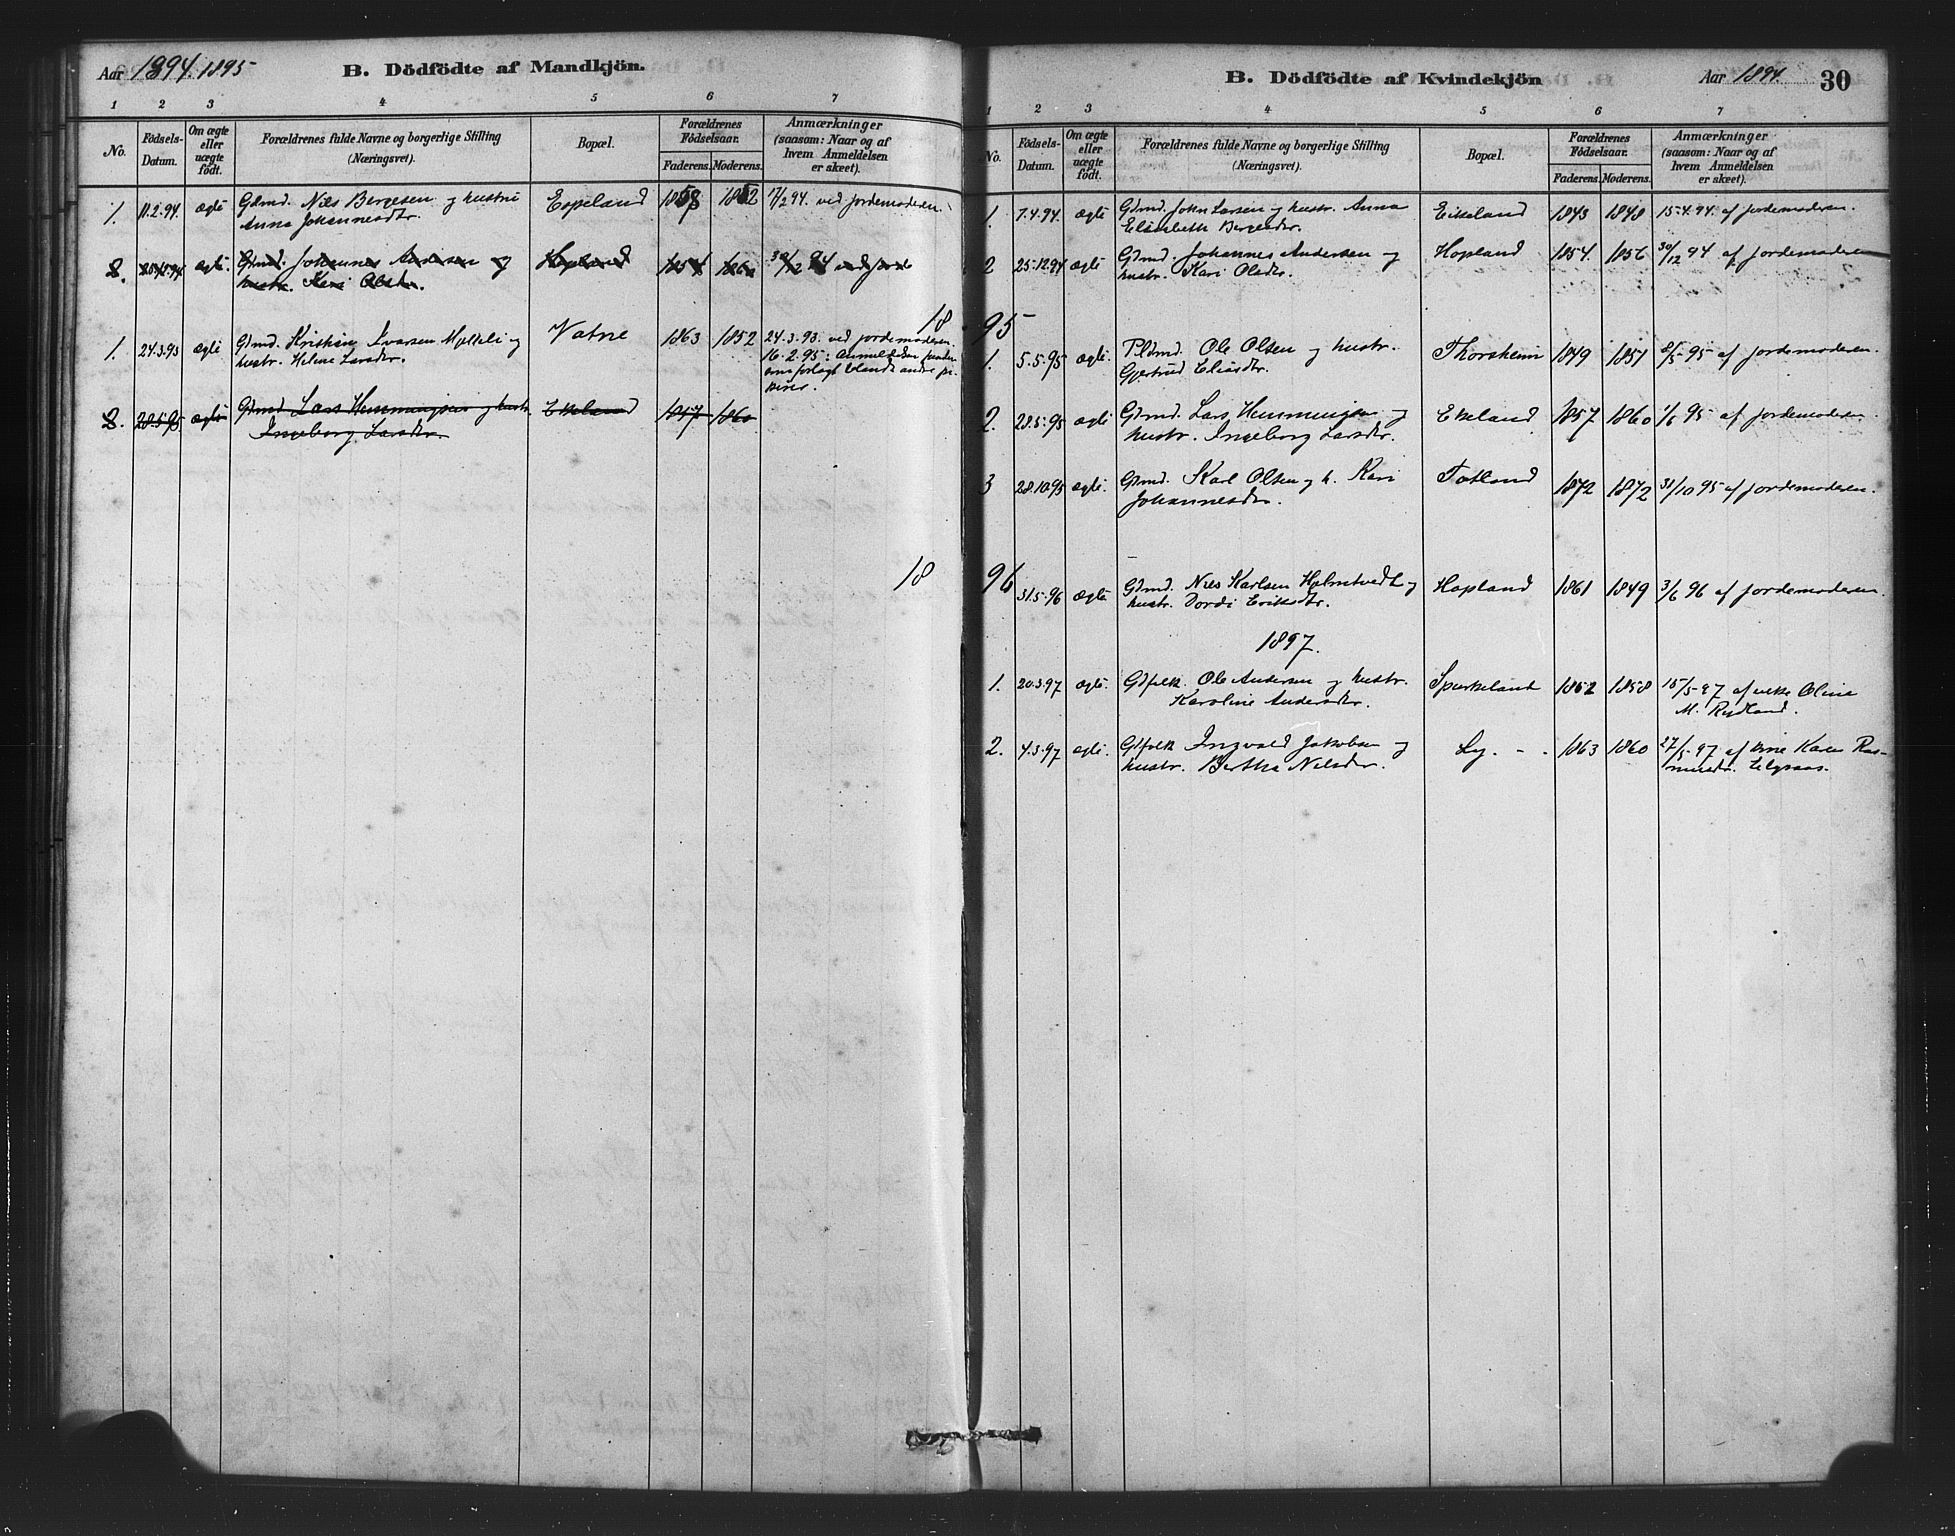 Aar 1894. 1895
B. Dödfödte af Mandkjön.
1 2 3 4 5 6 7
No.
Födsels-Datum.
Om ægte eller uægte födt.
Forældrenes fulde Navne og borgerlige Stilling
(Næringsvei).
Bopæl.
Forældrenes Födselsaar.
Faderens. Moderens.
Anmærkninger
(saasom: Naar og af
hvem Anmeldelsen
er skeet).
1. 11.2.94. ægte Gdmd. Nils Bergesen og hustru Espeland 1858 1852 17/2 94. ved jordemoderen.
Anna Johannesdtr.
2. 25.12.94 ægte. Gdmd. Johannes Andersen og Hopland 1854 30/12 94 ved jorde
hustr. Kari Olsdtr.
18
1. 24.3.93 ægte Gdmd. Kristian Ivarsen Mylteli og Vatne 1863 1852 24.3.93. ved jordemoderen.
hustr. Helene Larsdtr. 16.2.95: Anmeldelsen
forlagt blandt andre pa-
pirer.
2. 28.5.95 ægte Gdmd Lars Hemmingsen og hustr. Ekeland 1857 1860
Ingeborg Larsdtr.
18
B. Dödfödte af Kvindekjön
Aar 1894. 30
1 2 3 4 5 6 7
No.
Födsels-Datum.
Om ægte eller uægte födt.
Forældrenes fulde Navne og borgerlige Stilling
(Næringsvei).
Bopæl.
Forældrenes Födselsaar.
Faderens. Moderens.
Anmærkninger
(saasom: Naar og af
hvem Anmeldelsen
er skeet).
1. 7.4.94. ægte Gdmd. John Larsen og hustr. Anna Eikeland 1843 1848 15.4.94. af jordemoderen.
Elisabeth Bergesdtr.
2 25.12.94 ægte Gdmd. Johannes Andersen og Hopland 1854. 1856 30/12 94 af jordemoderen
hustr. Kari Olsdtr.
95
1. 5.5.95 ægte. Pldmd. Ole Olsen og hustr. Thorsheim 1849 1851 8/5 95 af jordemoderen.
Gjertrud Eliasdtr.
2. 28.5.95 ægte Gdmd. Lars Hemmingsen og Ekeland 1857 1860 1/6 95 af jordemoderen.
hustr. Ingeborg Larsdtr.
3 28.10.95 ægte. Gdmd. Karl Olsen og h. Kari Totland 1872 1872 31/10 95 af jordemoderen.
Johannesdtr.
96
31.5.96 ægte Gdmd. Nils Karlsen Holmstvedt og Hopland 1861 1849 3/6 96 af jordemoderen.
hustr. Dordi Eriksdtr.
1897.
1. 20.3.97 ægte. Gdfolk. Ole Andersen og hustr. Spurkeland 1852 1858 15/5 97 af enke Oline
Karoline Andersdtr. M. Rydland.
2. 4.3.97 ægte. Gdfolk Ingvald Jakobsen og Ly. 1863 1860 27/5 97 af Karen Ras-
hustr. Bertha Nilsdtr. musdtr. Elgsaas.